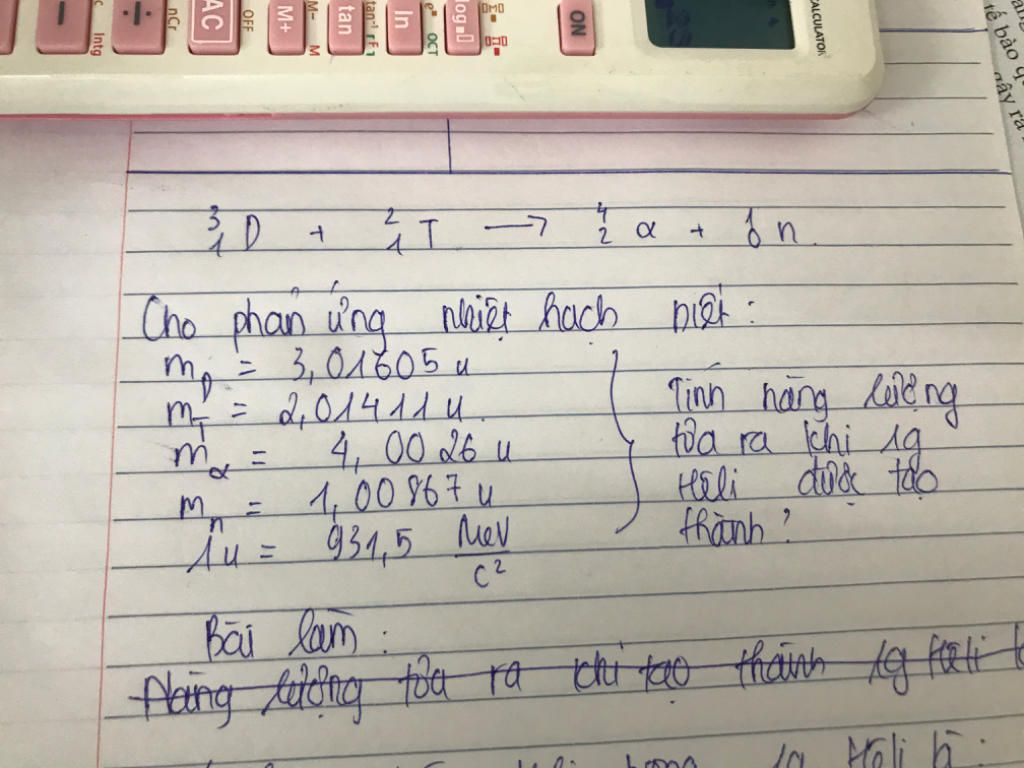 CALCULATOR
ON
OFF
AC
nCr
Intg
M-
M+
M
tan⁻¹
tan
eˣ
ln
OCT
log
tế bào
gây ra
³₁D + ²₁T → ⁴₂α + ¹₀n.
Cho phản ứng nhiệt hạch biết:
m_D = 3,01605 u
m_T = 2,01411 u
m_α = 4,0026 u
m_n = 1,00867 u
1u = 931,5 MeV/c²
Tính năng lượng
tỏa ra khi 1g
Hêli được tạo
thành?
Bài làm:
Năng lượng tỏa ra khi tạo thành 1g Hêli
1g Hêli là: